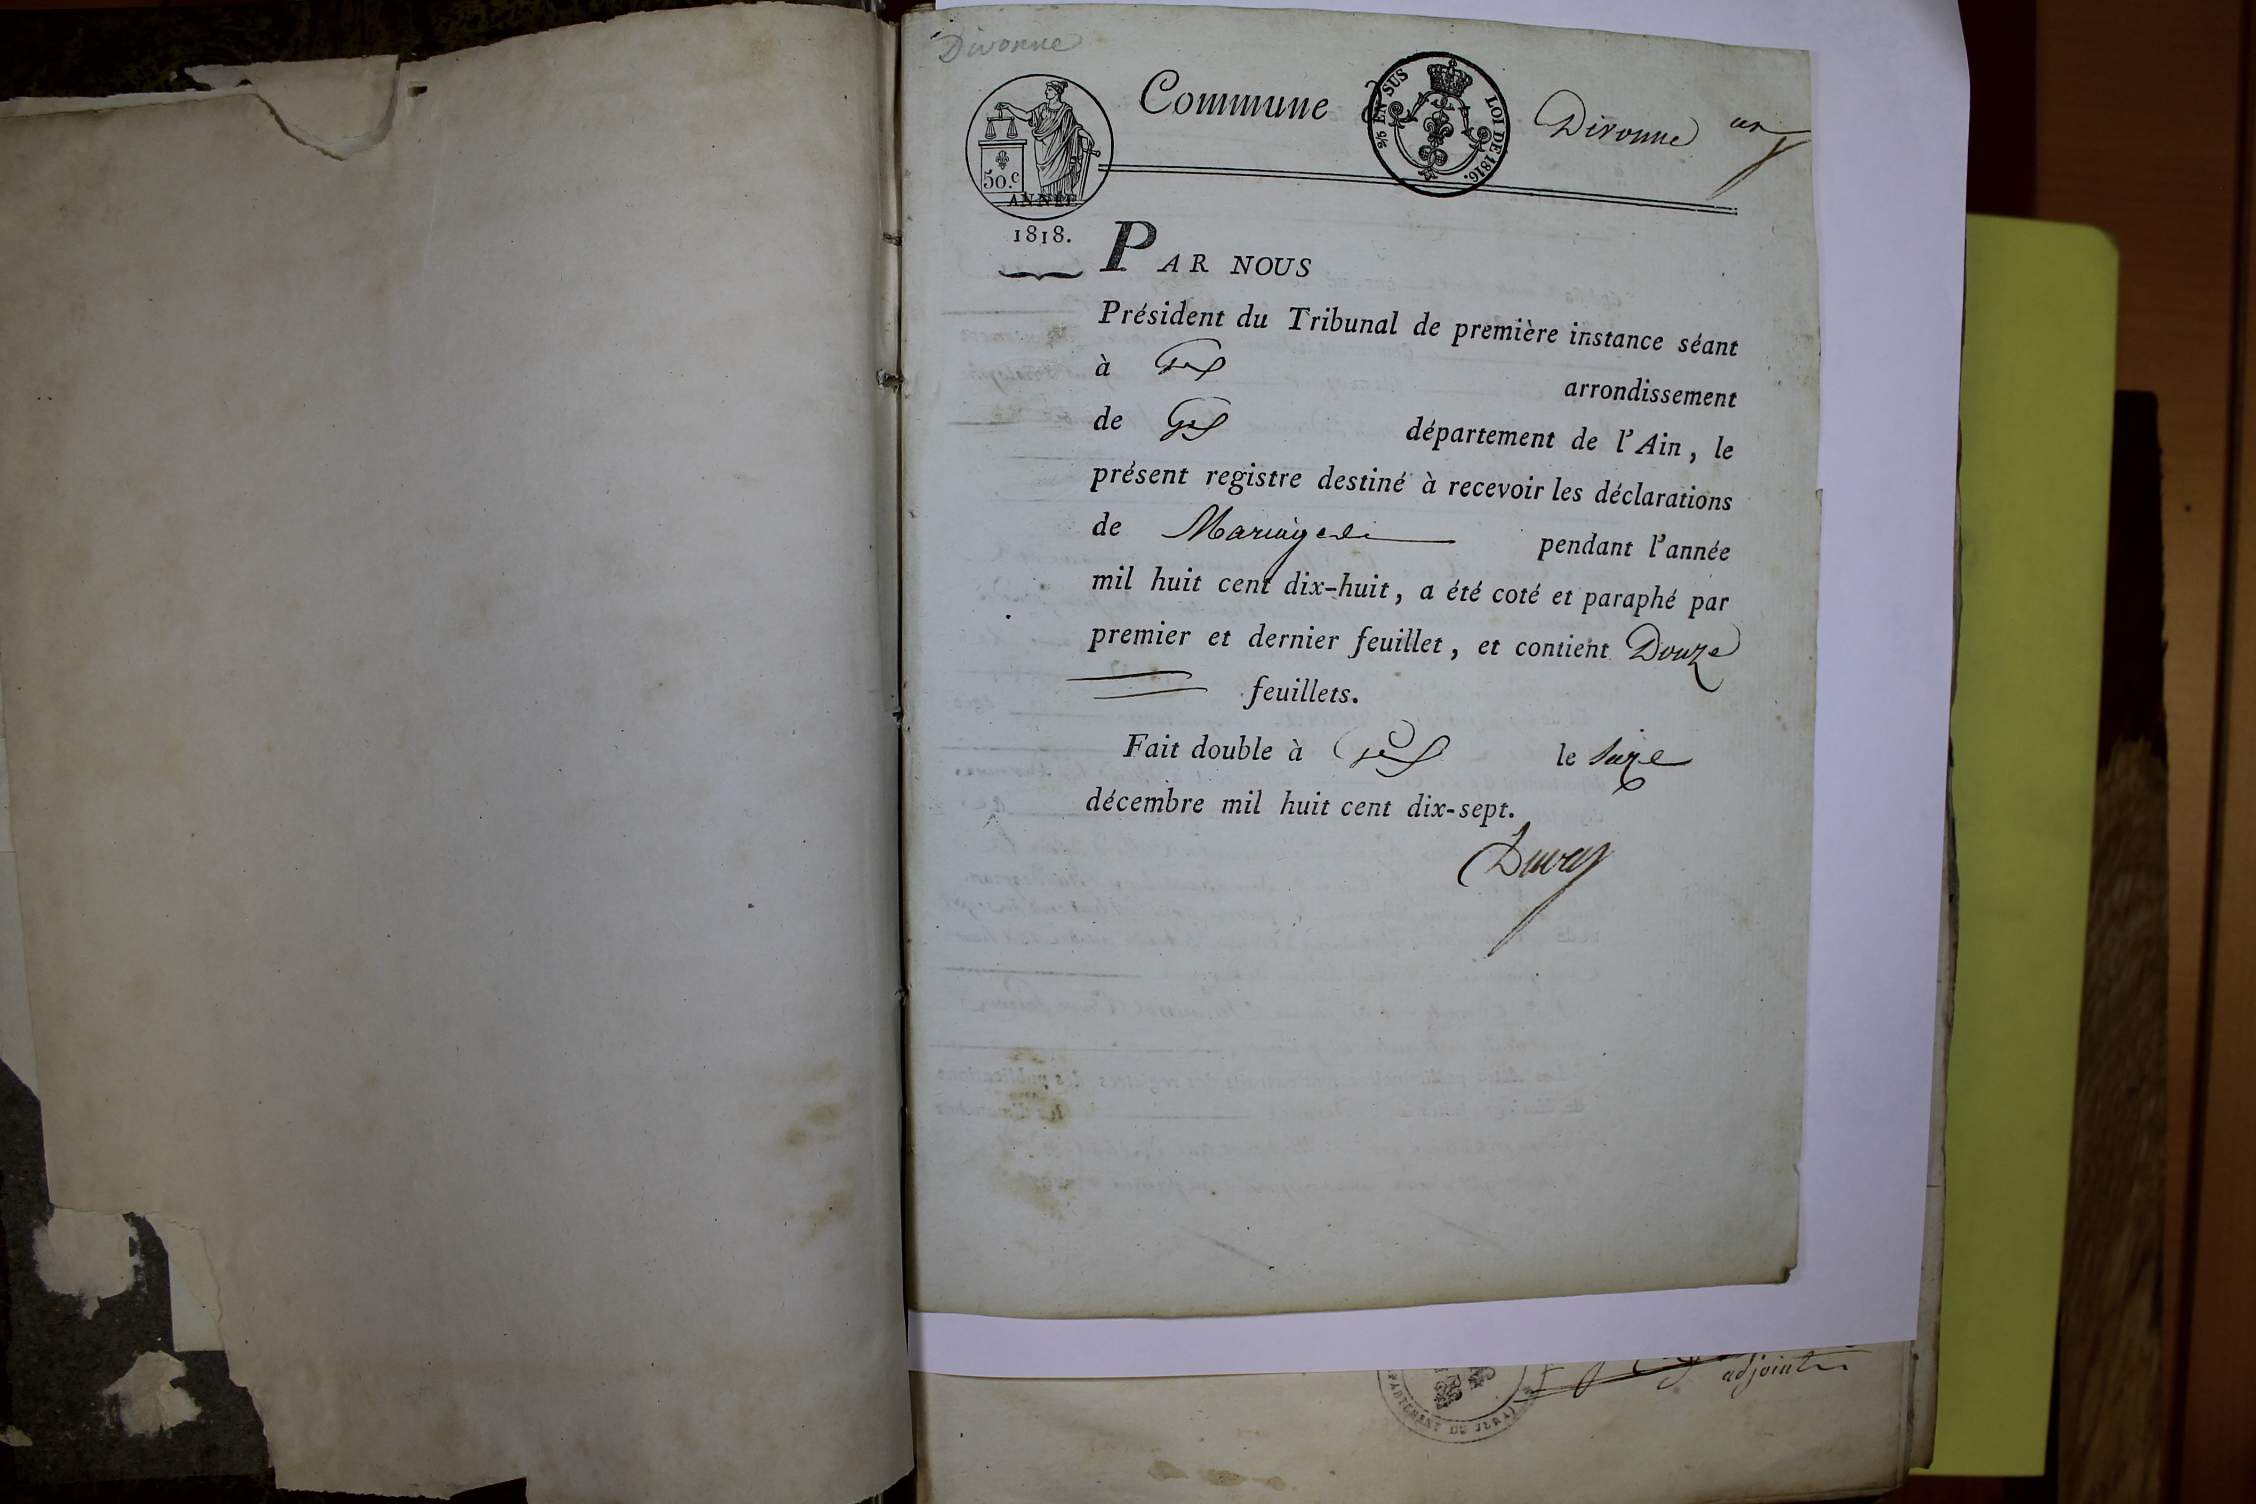 Divonne
Commune
Divonne un
2/5 EN SUS LOI DE 1816.
50.c
ANNÉE
1818.
PAR NOUS
Président du Tribunal de première instance séant
à Gex arrondissement
de Gex département de l'Ain, le
présent registre destiné à recevoir les déclarations
de Mariages pendant l'année
mil huit cent dix-huit, a été coté et paraphé par
premier et dernier feuillet, et contient Douze
feuillets.
Fait double à Gex le seize
décembre mil huit cent dix-sept.
adjoint
DU JURA